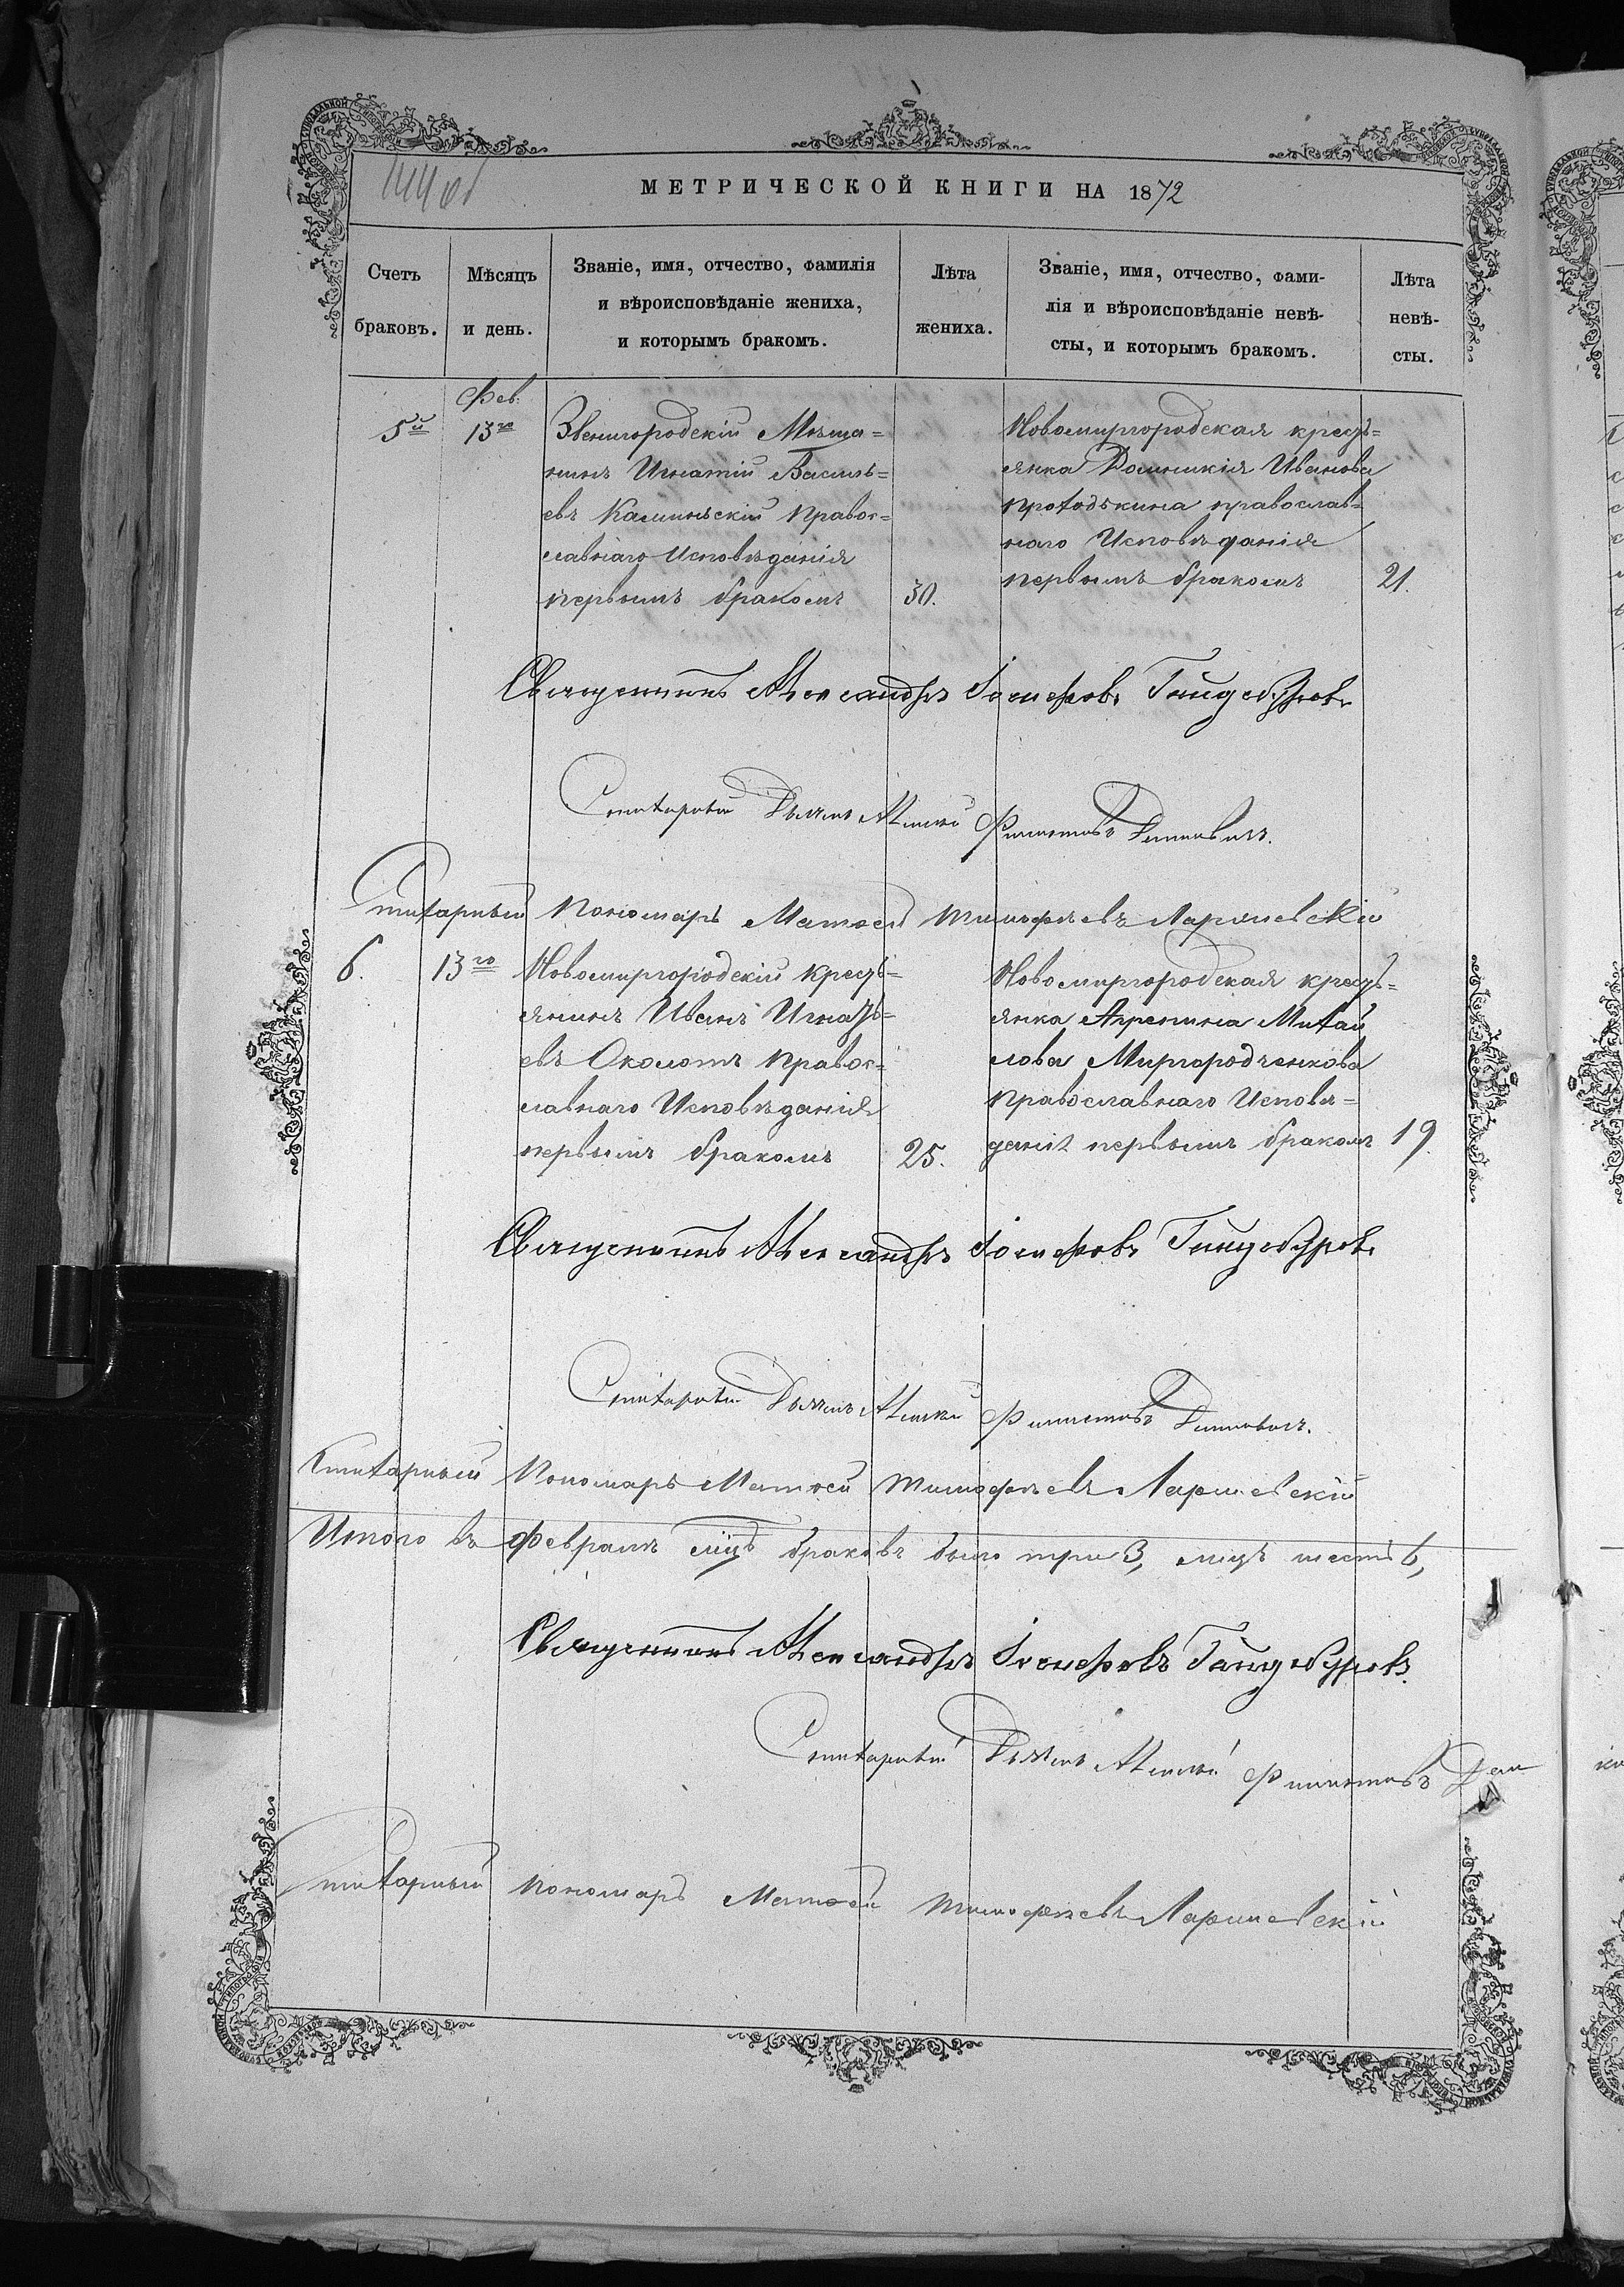 МЕТРИЧЕСКОЙ КНИГИ НА 1872
Счетъ браковъ.
Мѣсяцъ и день.
Званіе, имя, отчество, фамилія
и вѣроисповѣданіе жениха,
и которымъ бракомъ.
Лѣта жениха.
Званіе, имя, отчество, фами-
лія и вѣроисповѣданіе невѣ-
сты, и которымъ бракомъ.
Лѣта невѣ-
сты.
Фев.
5й
13го
Звенигородскій Мѣща=
нинъ Игнатій Василь=
евъ Калинѣскій Правос=
лавнаго Исповѣданія
первымъ бракомъ
30.
Новомиргородская крестъ=
янка Домникія Иванова
православ=
наго Исповѣданія
первымъ бракомъ
21.
Священникъ Александръ Іосифовъ
Стихарный Дьячекъ Филиповъ
Стихарный Пономарь Матвей Тимофѣевъ
6.
13го
Новомиргородскій крестъ=
янинъ Иванъ Игнатъ=
евъ Околотъ Правос=
лавнаго Исповѣданія
первымъ бракомъ
25.
Новомиргородская крестъ=
янка Агрепина Михай
лова Миргородченкова
Православнаго Исповѣ=
данія первымъ бракомъ
19.
Священникъ Александръ Іосифовъ
Стихарный Дьячекъ Филиповъ
Стихарный Пономарь Матвей Тимофѣевъ
Итого въ Февралѣ мцѣ браковъ было три 3, лицъ шесть 6,
Священникъ Александръ Іосифовъ
Стихарный Дьячекъ Филиповъ
Стихарный Пономарь Матвей Тимофѣевъ